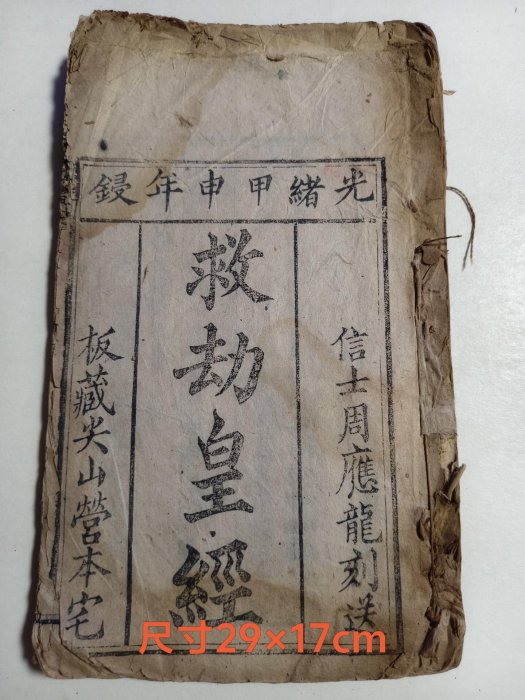 光緒甲申年鋟
信士周應龍刻送
救劫皇經
板藏尖山營本宅
尺寸29x17cm